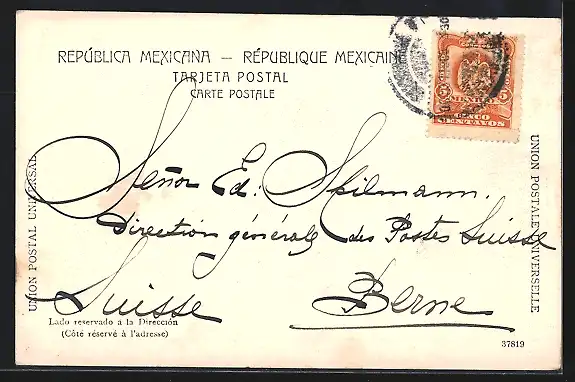 REPÚBLICA MEXICANA — RÉPUBLIQUE MEXICAINE
TARJETA POSTAL
CARTE POSTALE
MEXICO
5 5
CINCO
CENTAVOS
UNION POSTAL UNIVERSAL
UNION POSTALE UNIVERSELLE
Señor Ed: Spilmann.
Direction générale des Postes Suisse
Berne
Suisse
Lado reservado á la Dirección
(Côté réservé à l'adresse)
37819